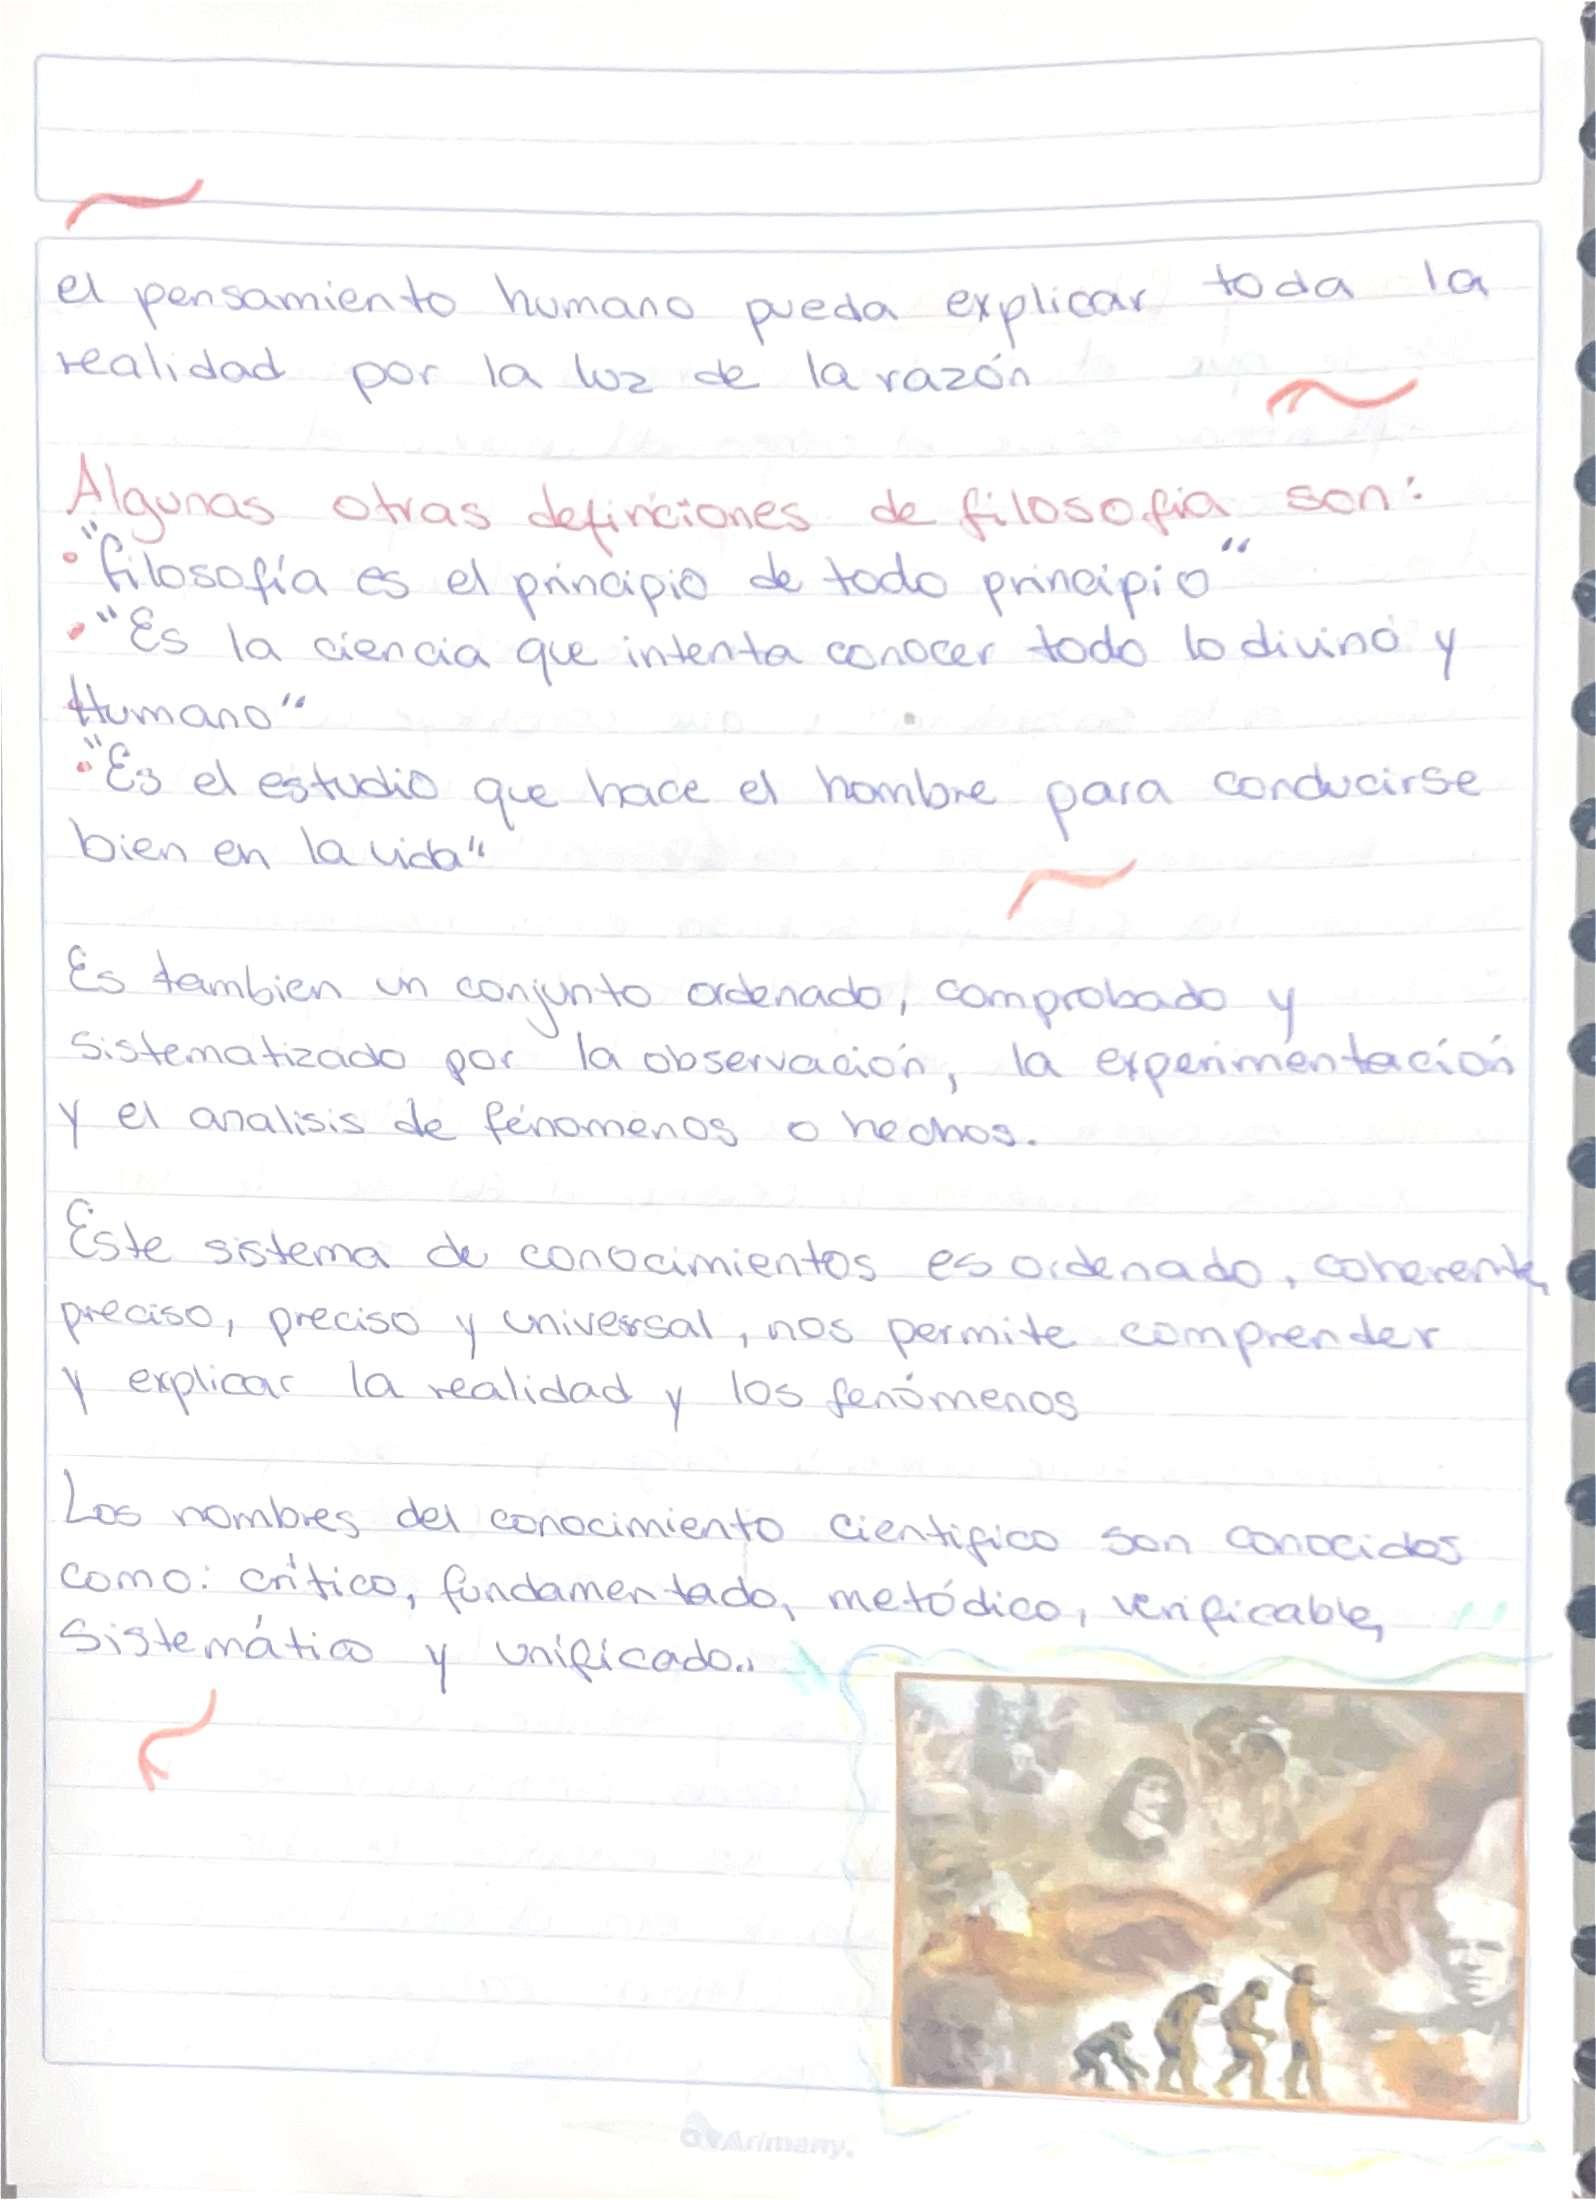 el pensamiento humano pueda explicar toda la
realidad por la luz de la razón
Algunas otras definiciones de filosofia son:
•"filosofía es el principio de todo principio"
•"Es la ciencia que intenta conocer todo lo divino y
Humano"
•"Es el estudio que hace el hombre para conducirse
bien en la vida"
Es tambien un conjunto ordenado, comprobado y
sistematizado por la observación, la experimentación
y el analisis de fénomenos o hechos.
Este sistema de conocimientos es ordenado, coherente,
preciso, preciso y universal, nos permite comprender
y explicar la realidad y los fenómenos
Los nombres del conocimiento cientifico son conocidos
como: crítico, fundamentado, metódico, verificable,
Sistemático y unificado..
Arimany.